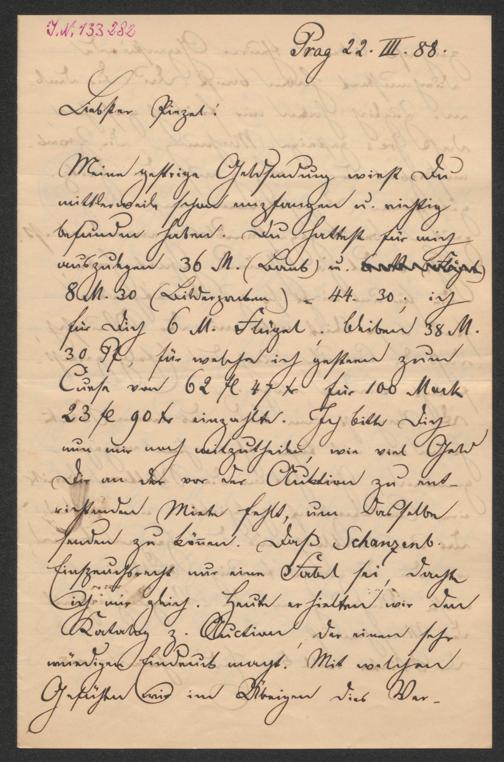 I.N. 133.282
Prag 22. III. 88.
Liebster Piezel!
Meine gestrige Geldsendung wirst Du
mittlerweile schon empfangen u. richtig
befunden haben. Du hattest für mich
auszulegen 36 M. (Band) u.
8 M. 30 (Bilderrahmen) = 44. 30; ich
für Dich 6 M. Flügel, bleiben 38 M.
30 Pf., für welche ich gestern zum
Curse von 62 fl 47 xr für 100 Mark
23 fl 90 xr einzahlte. Ich bitte Dich
nun mir noch mitzutheilen, wie viel Geld
Dir an der vor der Auktion zu ent-
richtenden Miete fehlt, um dasselbe
senden zu können. Daß Schanzenb.
Einspruchsrecht nur eine Fabel sei, dachte
ich mir gleich. Heute erhielten wir den
Katalog z. Auction, der einen sehr
würdigen Eindruck macht. Mit welchen
Gefühlen wir im Übrigen dies Ver-